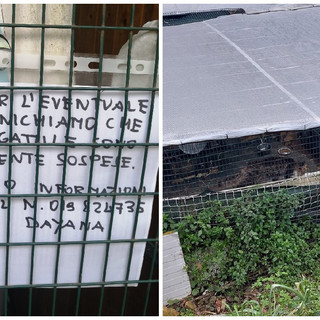 R L'EVENTUALE
NICHIAMO CHE
GATIVE SONO
ENTE SOSPESE.
O INFORMAZION
L N. 019 824735
DAYANA